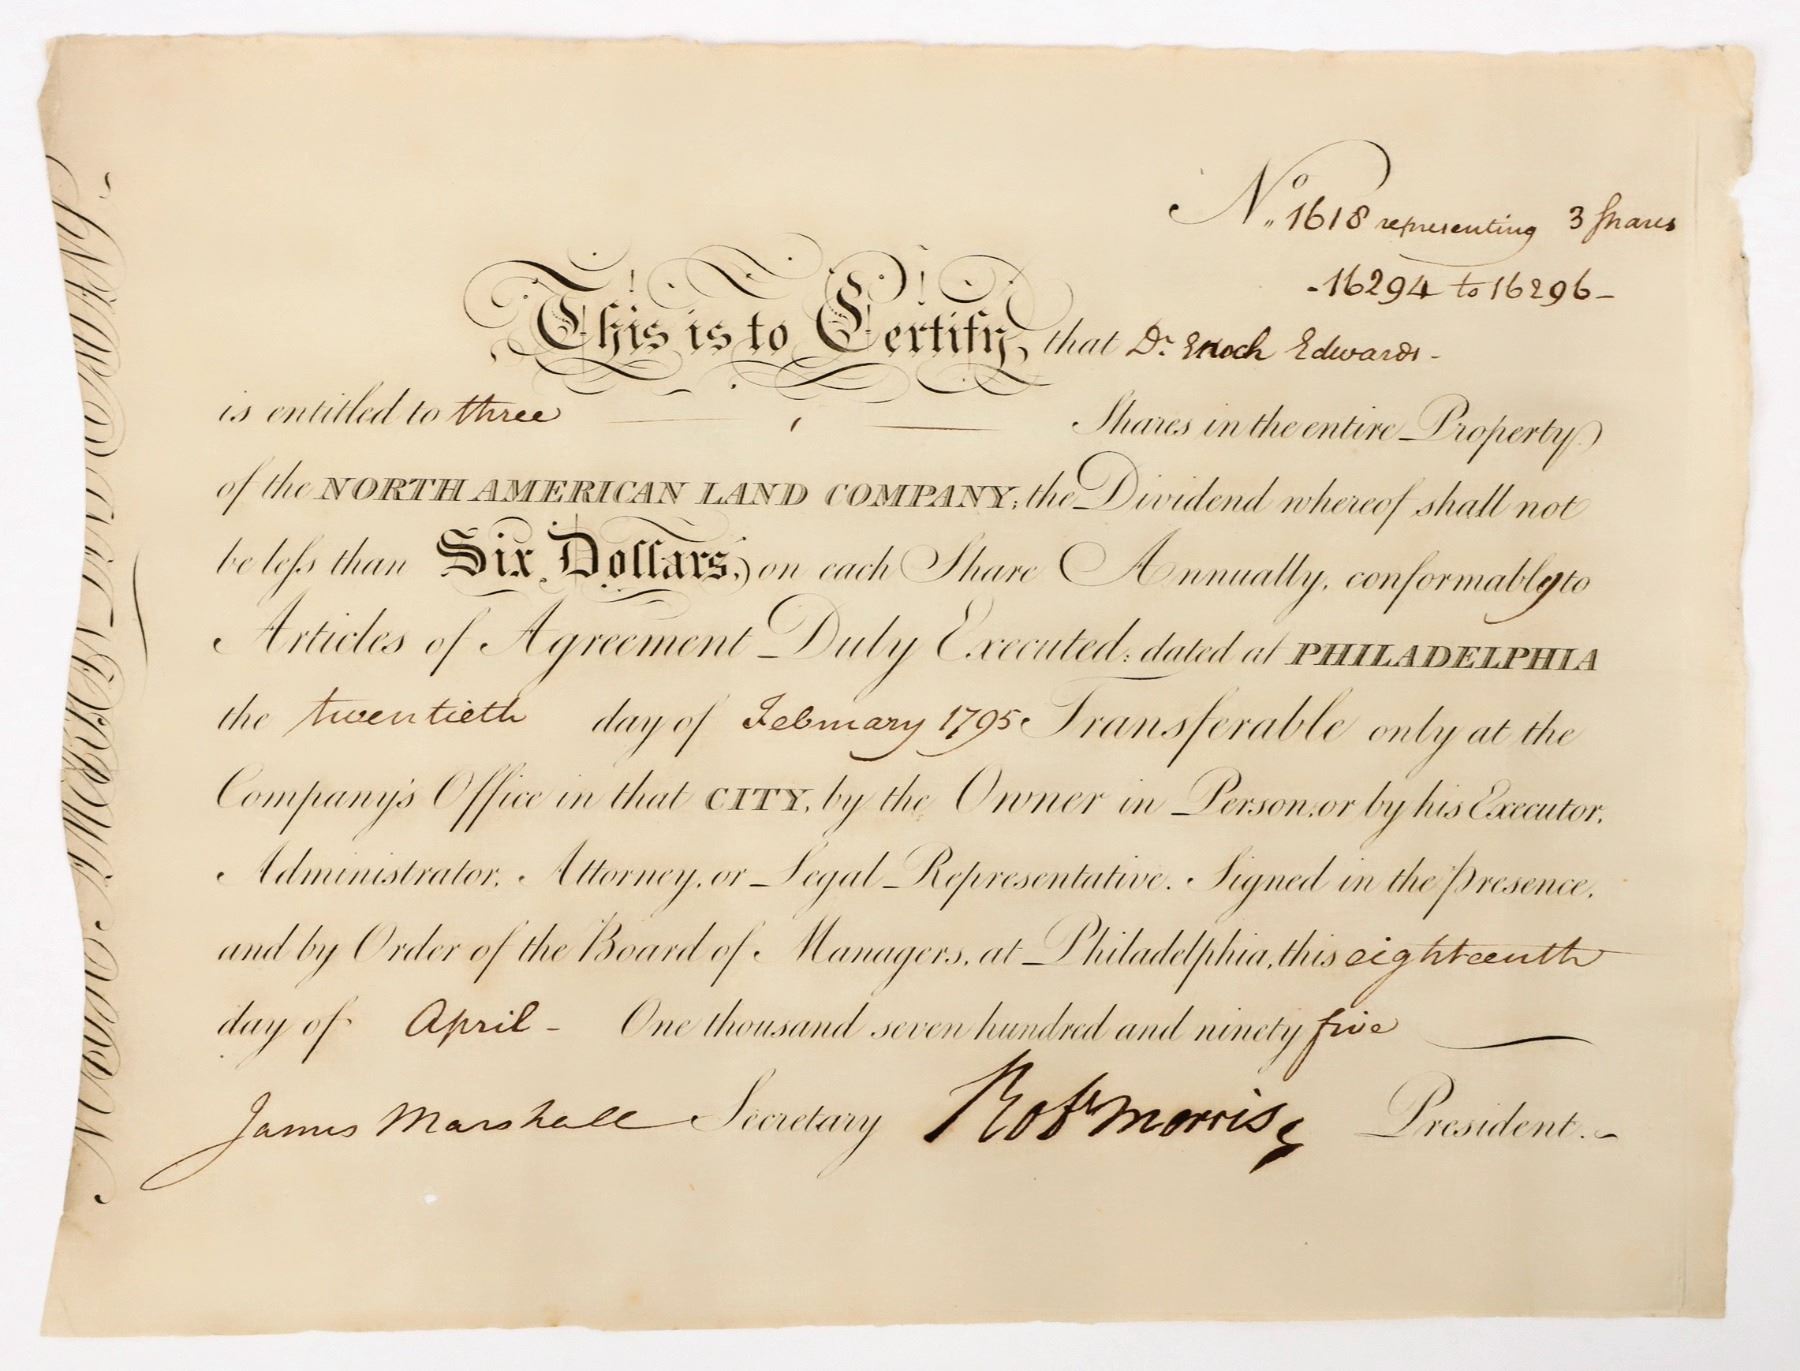 No. 1618 representing 3 Shares
-16294 to 16296-
This is to Certify, that Dr. Enoch Edwards-
is entitled to three Shares in the entire Property
of the NORTH AMERICAN LAND COMPANY; the Dividend whereof shall not
be less than Six Dollars, on each Share Annually, conformably to
Articles of Agreement Duly Executed; dated at PHILADELPHIA
the twentieth day of February 1795 Transferable only at the
Company's Office in that CITY, by the Owner in Person, or by his Executor,
Administrator, Attorney, or Legal Representative. Signed in the presence,
and by Order of the Board of Managers, at Philadelphia, this eighteenth
day of April - One thousand seven hundred and ninety five
James Marshall Secretary Robt Morris President.